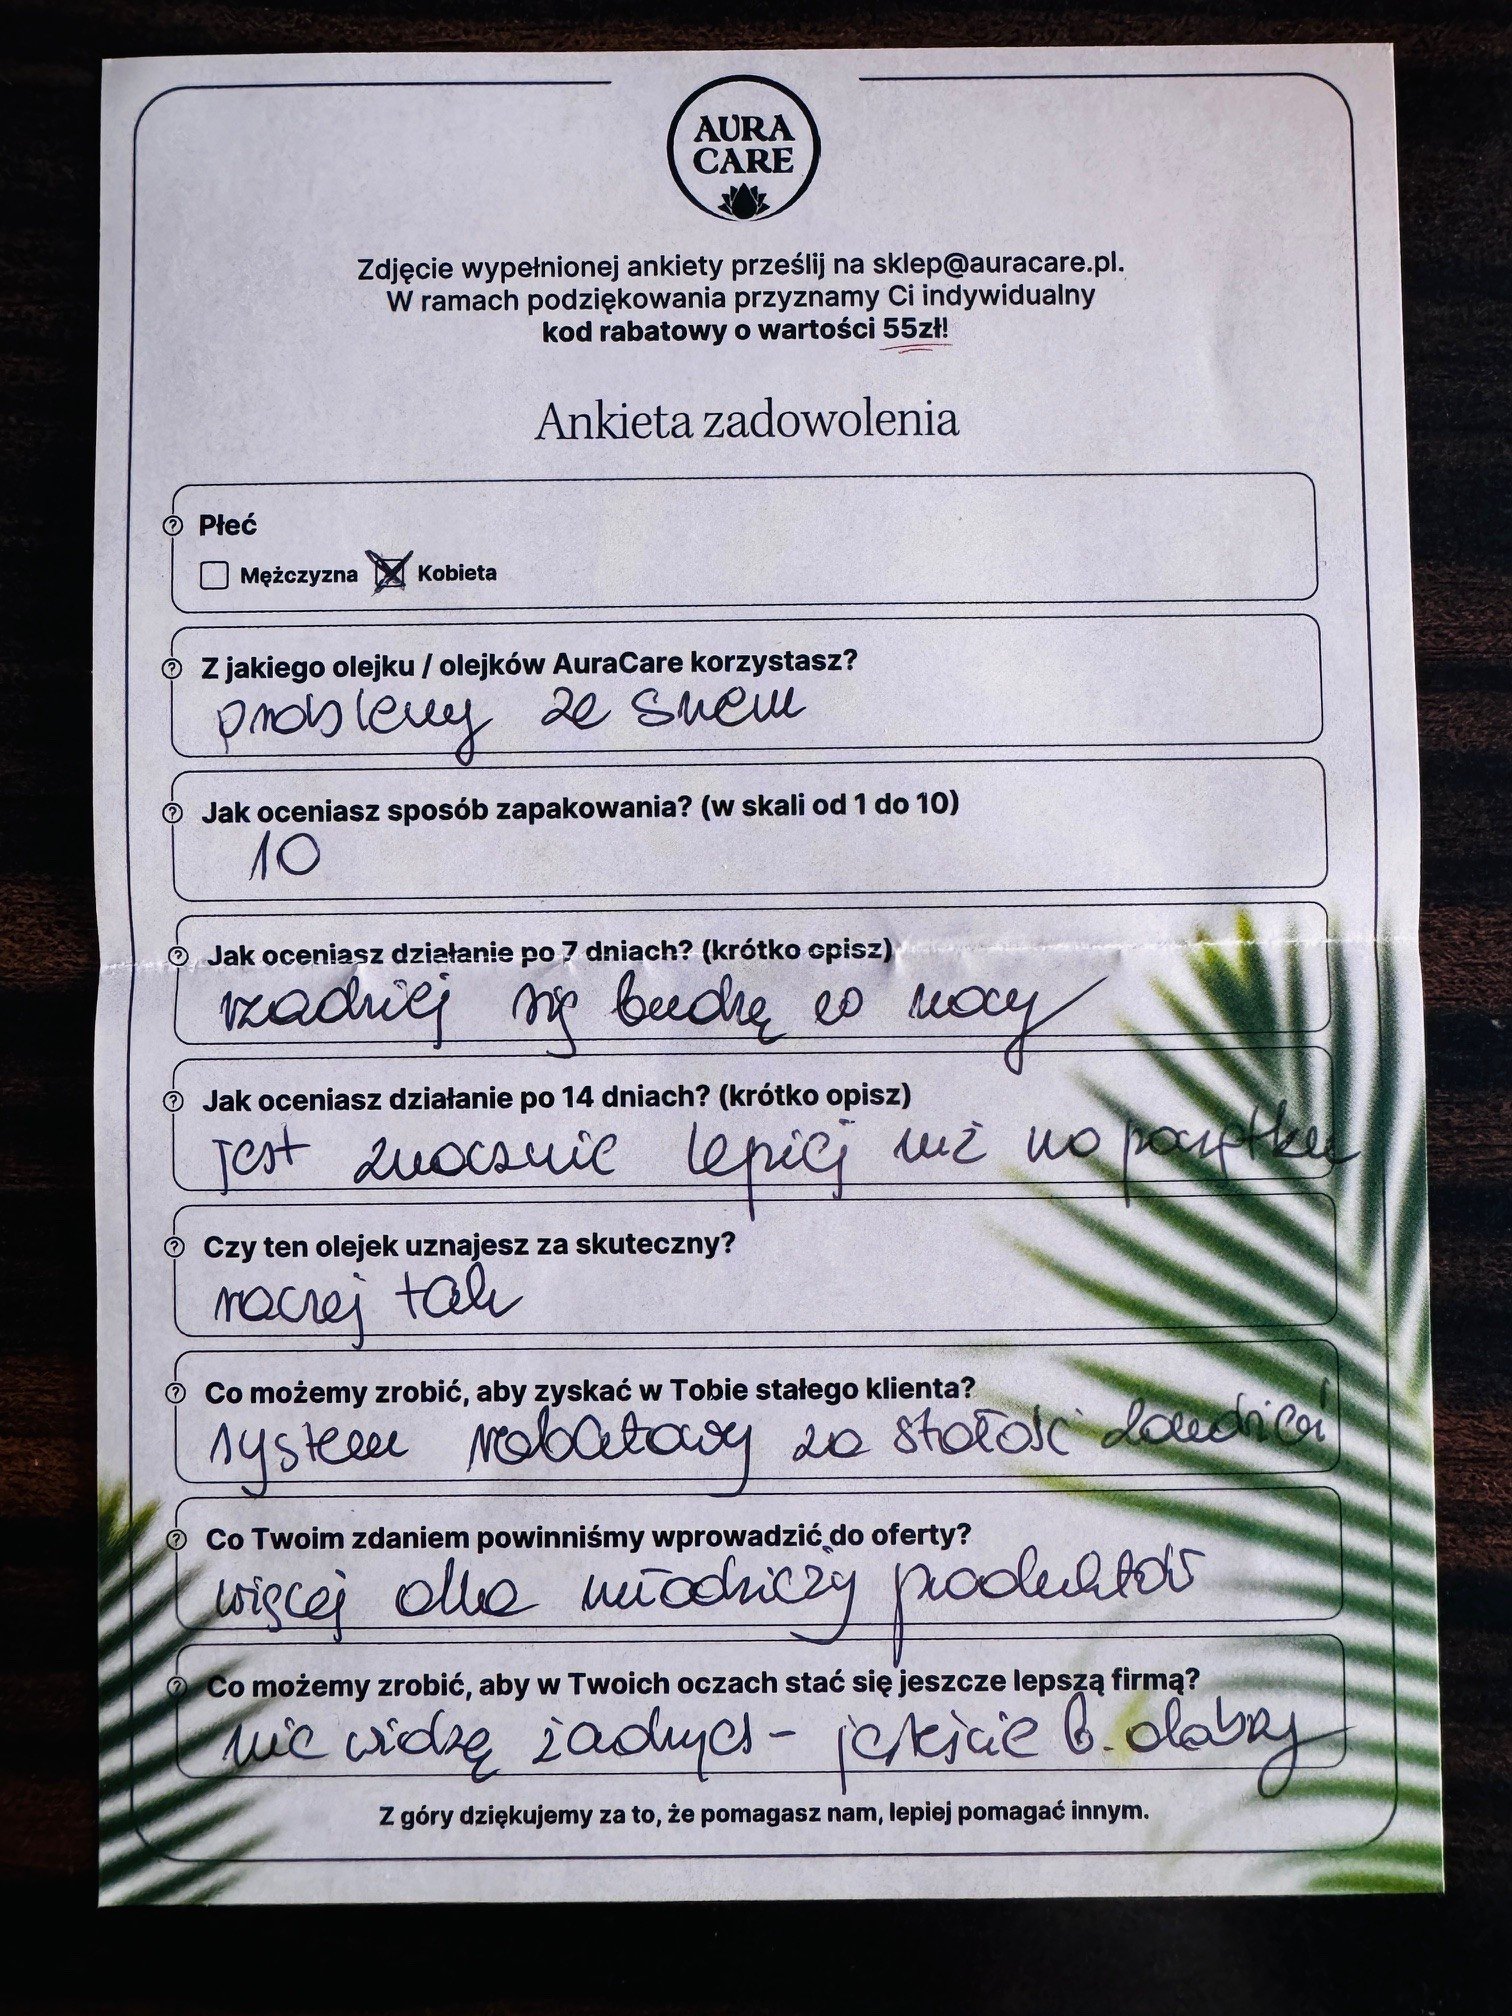 AURA
CARE
Zdjęcie wypełnionej ankiety prześlij na sklep@auracare.pl.
W ramach podziękowania przyznamy Ci indywidualny
kod rabatowy o wartości 55zł!
Ankieta zadowolenia
Płeć
Mężczyzna Kobieta
Z jakiego olejku / olejków AuraCare korzystasz?
problemy ze snem
Jak oceniasz sposób zapakowania? (w skali od 1 do 10)
10
Jak oceniasz działanie po 7 dniach? (krótko opisz)
rzadziej się budzę w nocy
Jak oceniasz działanie po 14 dniach? (krótko opisz)
jest znacznie lepiej niż na początku
Czy ten olejek uznajesz za skuteczny?
raczej tak
Co możemy zrobić, aby zyskać w Tobie stałego klienta?
system rabatowy za stałość
Co Twoim zdaniem powinniśmy wprowadzić do oferty?
więcej dla młodzieży produktów
Co możemy zrobić, aby w Twoich oczach stać się jeszcze lepszą firmą?
nie widzę żadnych - jesteście b. dobrzy
Z góry dziękujemy za to, że pomagasz nam, lepiej pomagać innym.